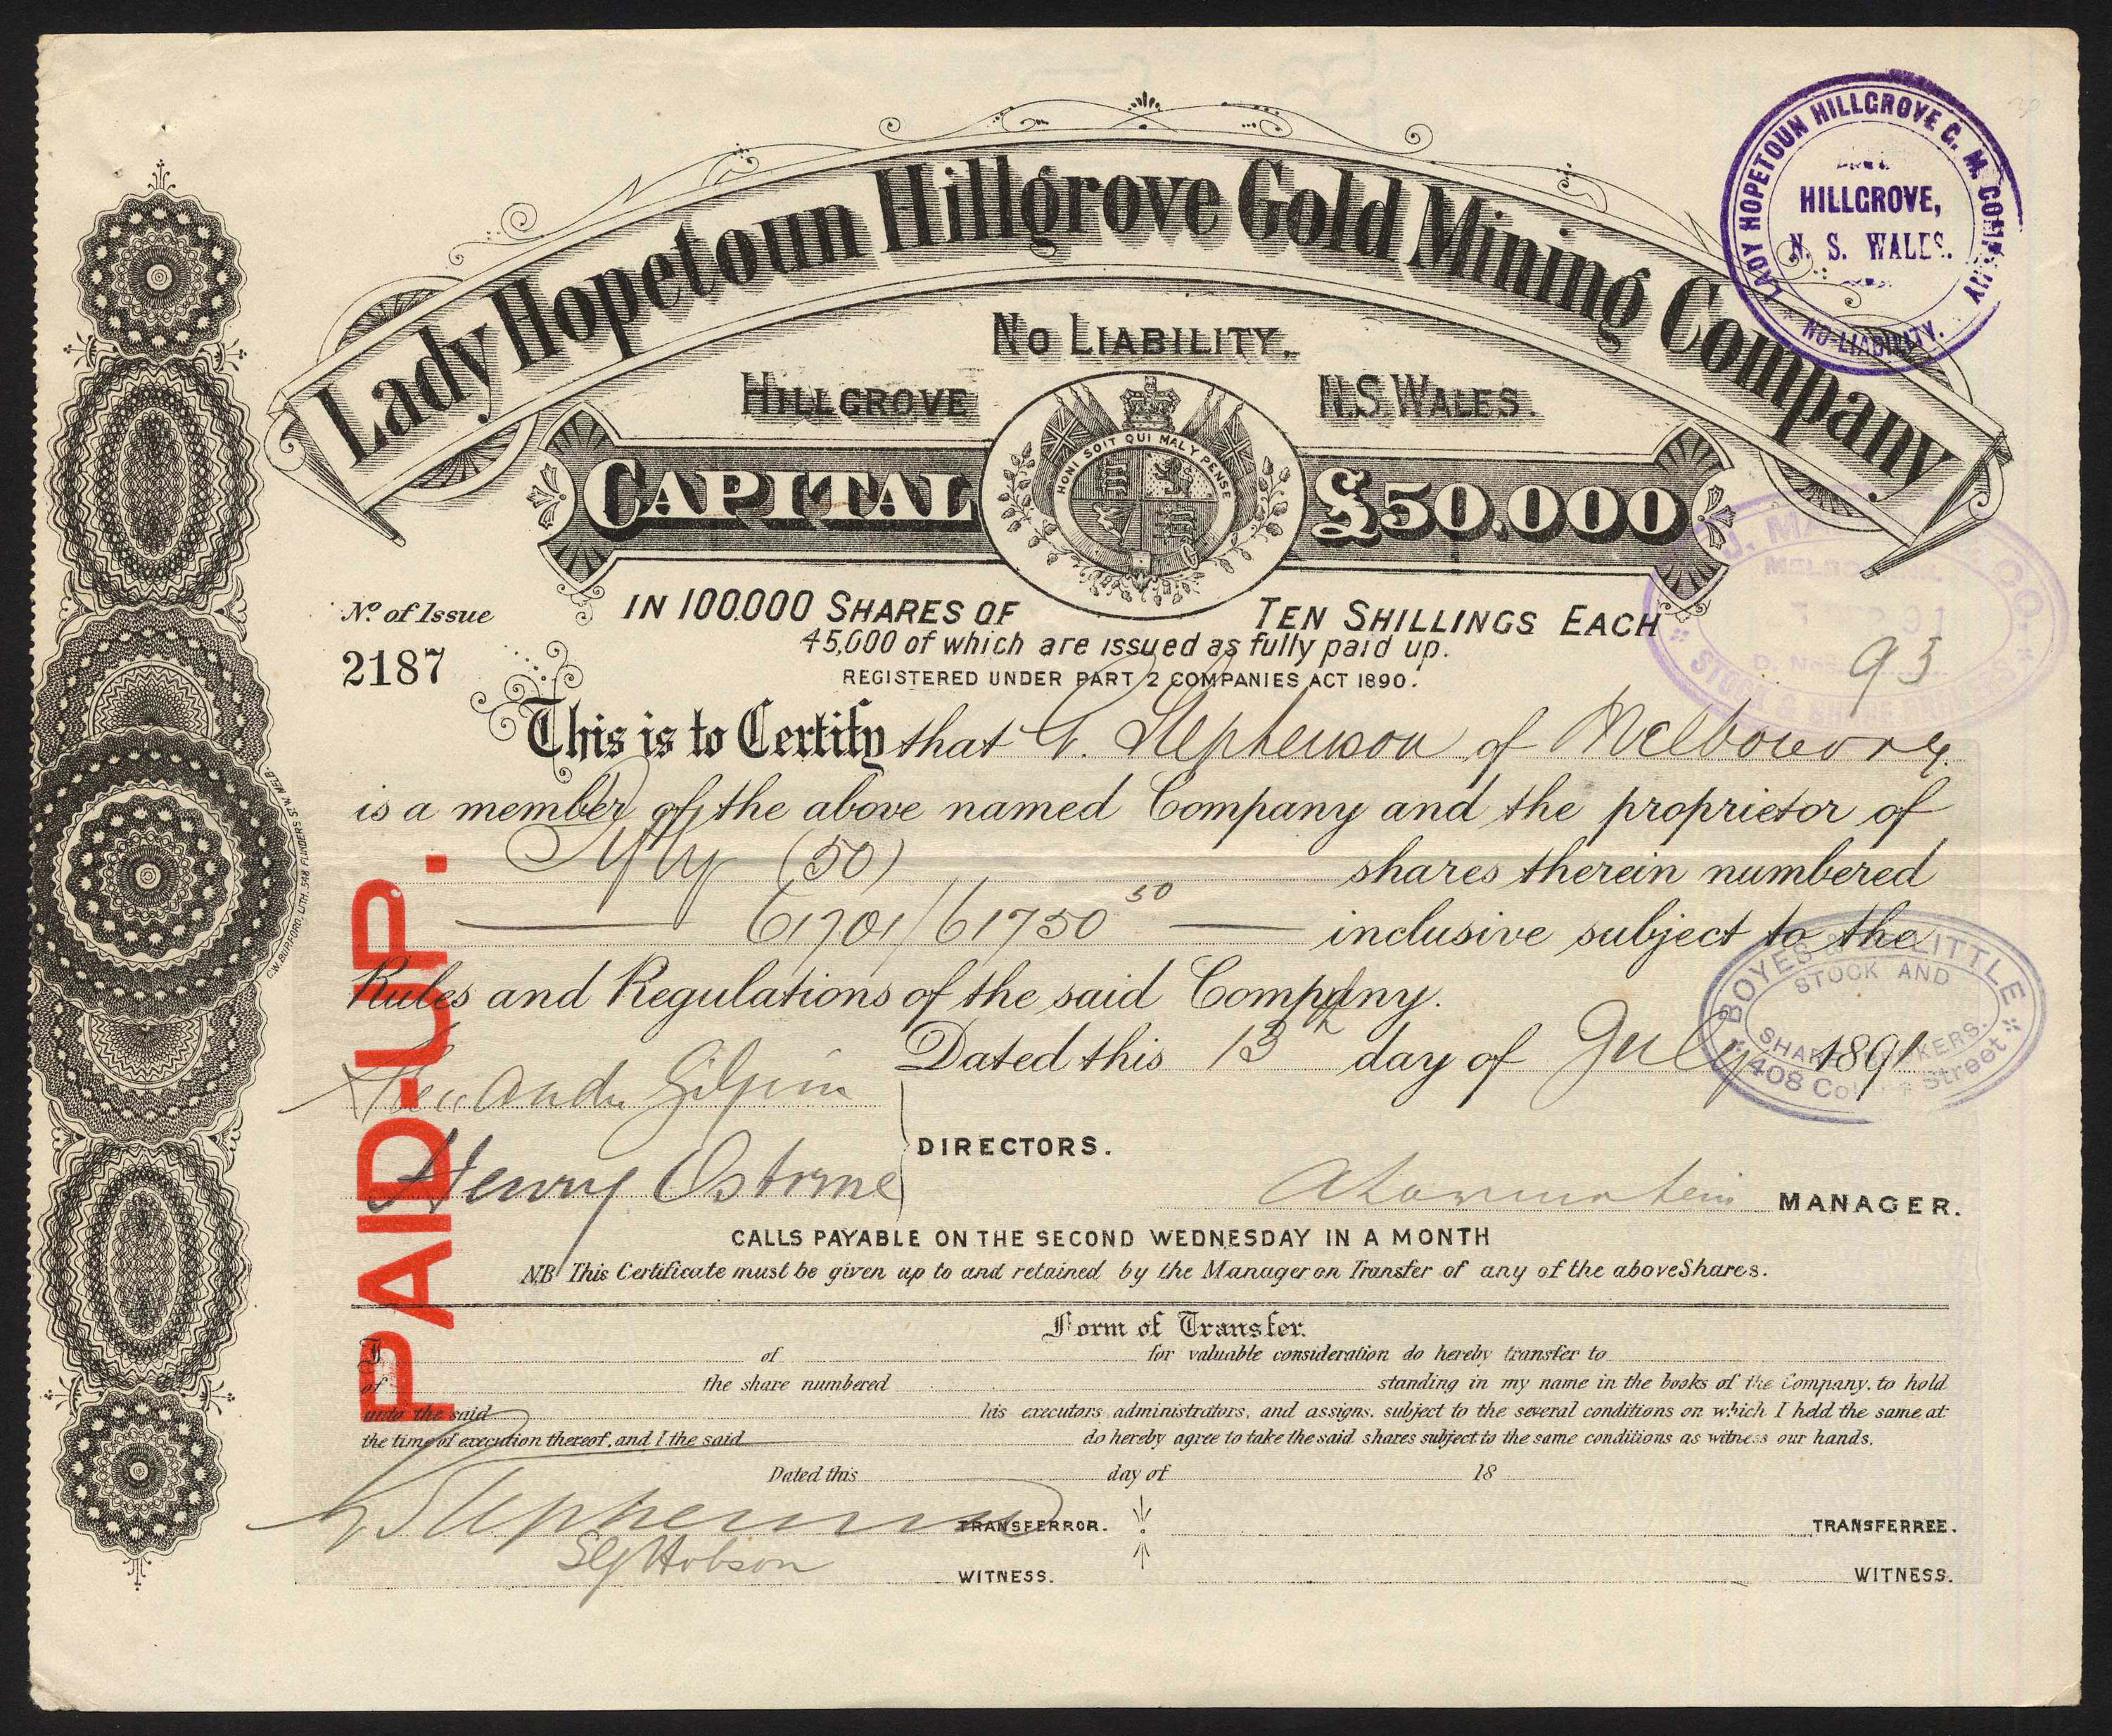 Lady Hopetoun Hillgrove Gold Mining Company
LADY HOPETOUN HILLGROVE G. M. COMPANY
HILLGROVE,
N. S. WALES.
NO-LIABILITY.
NO LIABILITY.
HILLGROVE N.S. WALES.
CAPITAL £50.000
HONI SOIT QUI MAL Y PENSE
J. CO.
MELBOURNE.
STOCK & SHARE BROKERS
93
No. of Issue
2187
IN 100.000 SHARES OF TEN SHILLINGS EACH
45,000 of which are issued as fully paid up.
REGISTERED UNDER PART 2 COMPANIES ACT 1890.
This is to Certify that G. Stephenson of Melbourne
is a member of the above named Company and the proprietor of
Fifty (50) shares therein numbered
61701/61750 50 inclusive subject to the
Rules and Regulations of the said Company.
Dated this 13th day of July 1891
BOYES & LITTLE
STOCK AND
SHARE BROKERS.
408 Collins Street
Alexander Gilpin
Henry Osborne
DIRECTORS.
MANAGER.
PAID-UP.
C.W. BURFORD. LITH. 548 FLINDERS ST W. MELB.
CALLS PAYABLE ON THE SECOND WEDNESDAY IN A MONTH
NB This Certificate must be given up to and retained by the Manager on Transfer of any of the above Shares.
Form of Transfer.
I of for valuable consideration do hereby transfer to
of the share numbered standing in my name in the books of the Company, to hold
unto the said his executors administrators, and assigns, subject to the several conditions on which I held the same at
the time of execution thereof, and I the said do hereby agree to take the said shares subject to the same conditions as witness our hands.
Dated this day of 18
G Stephenson TRANSFERROR. TRANSFERREE.
Hobson WITNESS. WITNESS.